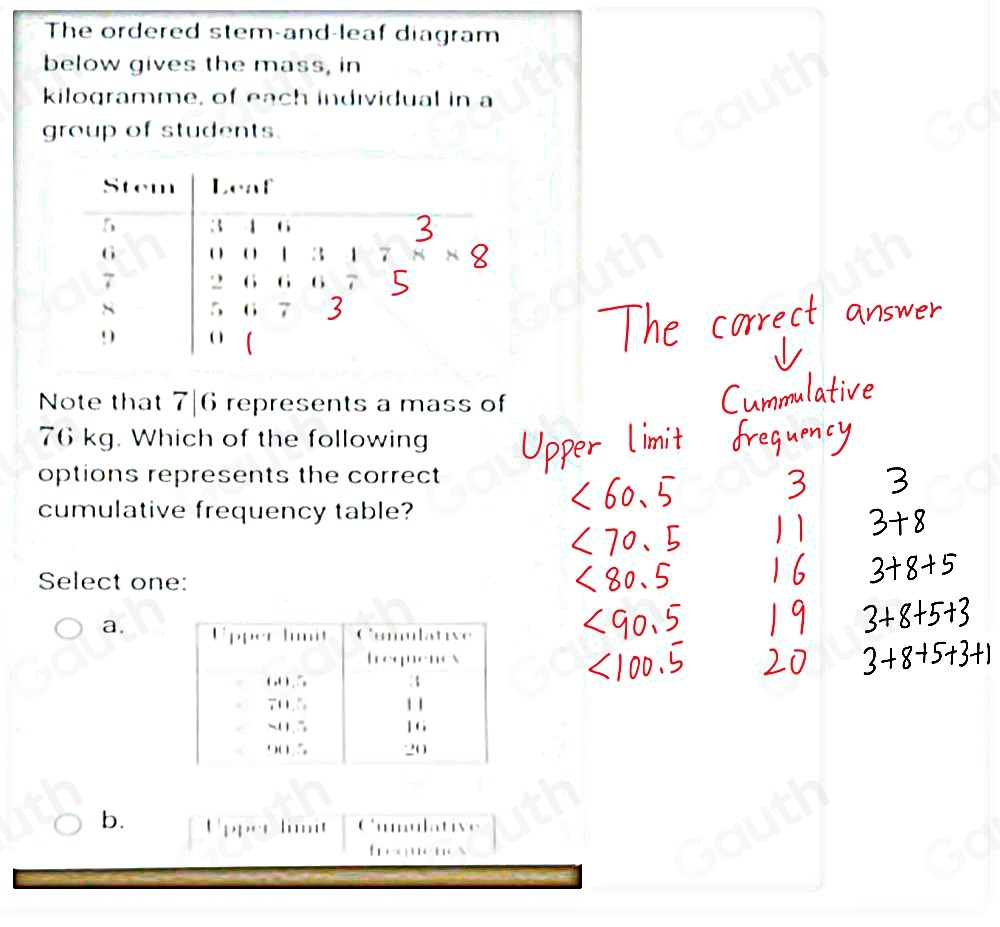 The ordered stem-and-leaf diagram
below gives the mass, in
kilogramme, of each individual in a
group of students.
Stem Leaf
5 3 4 6 3
6 0 0 1 3 4 7 8 8 8
7 2 6 6 6 7 5
8 5 6 7 3
9 0 1
Note that 7|6 represents a mass of
76 kg. Which of the following
options represents the correct
cumulative frequency table?
Select one:
a.
Upper limit Cumulative
frequency
< 60.5 3
< 70.5 11
< 80.5 16
< 90.5 20
b.
Upper limit Cumulative
frequency
The correct answer
↓
Cummulative
Upper limit frequency
<60.5 3 3
<70.5 11 3+8
<80.5 16 3+8+5
<90.5 19 3+8+5+3
<100.5 20 3+8+5+3+1
Gauth